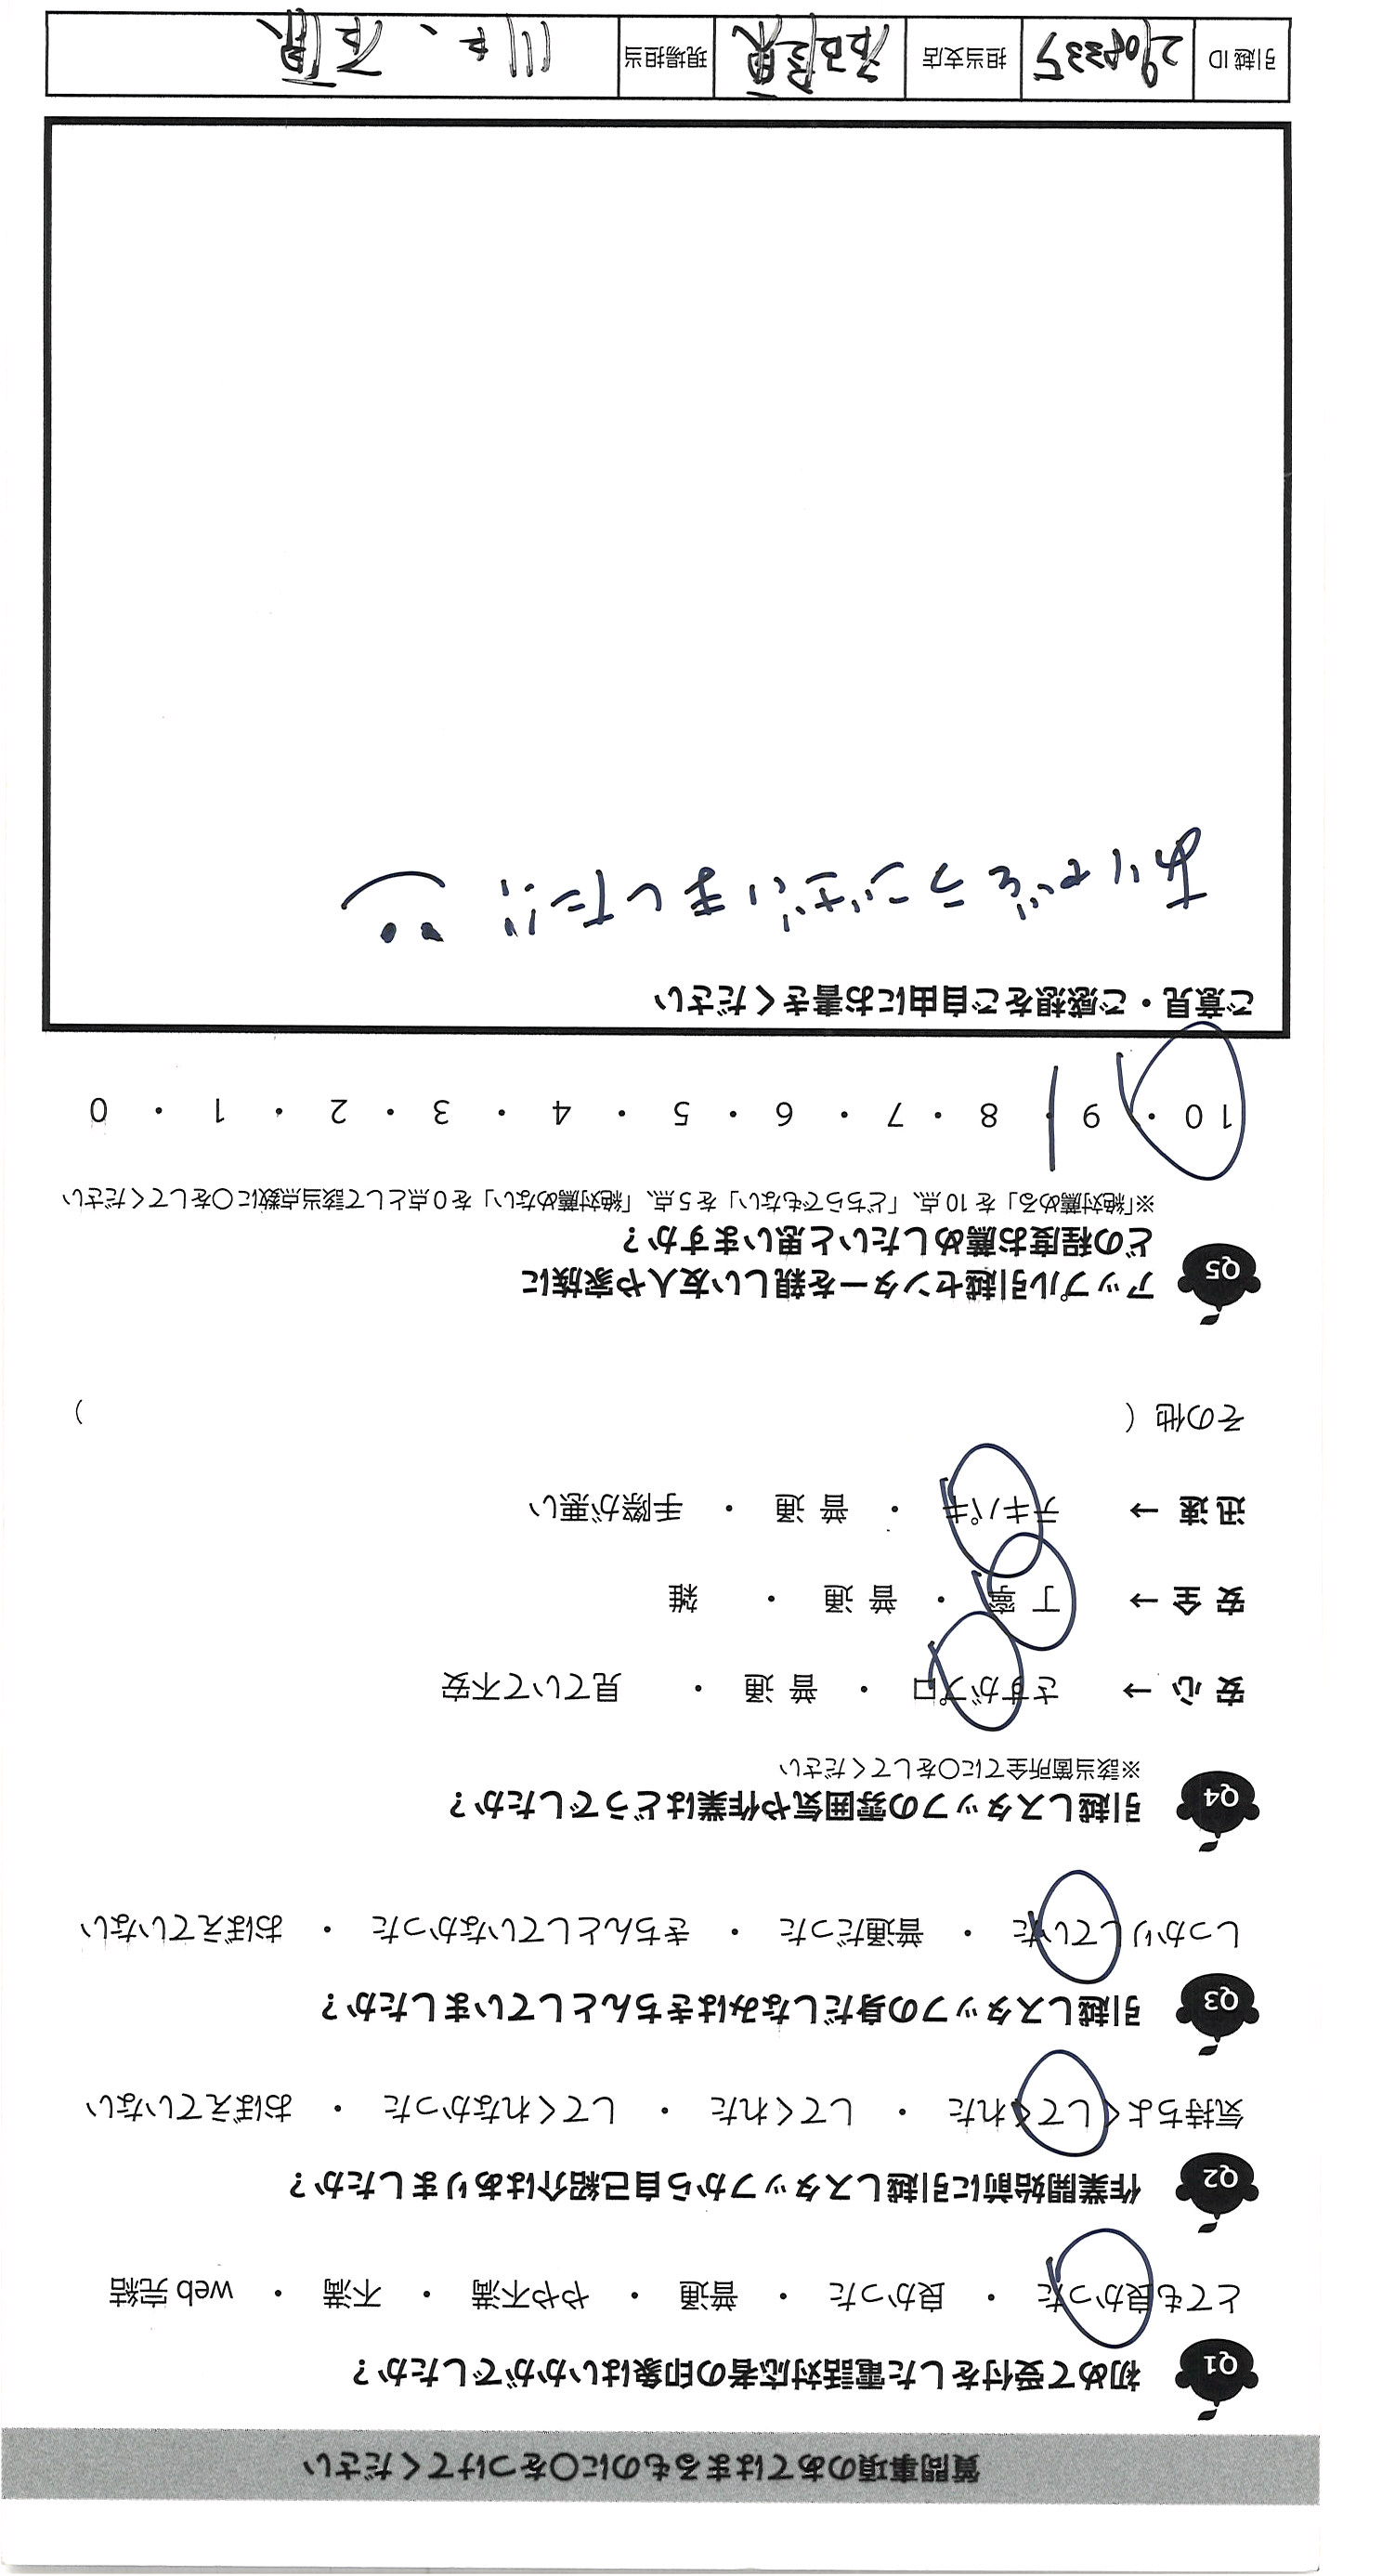 質問事項のあてはまるものに〇をつけてください
Q1 初めて受付をした電話対応者の印象はいかがでしたか？
とても良かった ・ 良かった ・ 普通 ・ やや不満 ・ 不満 ・ web 完結
Q2 作業開始前に引越しスタッフから自己紹介はありましたか？
気持ちよくしてくれた ・ してくれた ・ してくれなかった ・ おぼえていない
Q3 引越しスタッフの身だしなみはきちんとしていましたか？
しっかりしていた ・ 普通だった ・ きちんとしていなかった ・ おぼえていない
Q4 引越しスタッフの雰囲気や作業はどうでしたか？
※該当箇所全てに〇をしてください
安心 → さすがプロ ・ 普通 ・ 見ていて不安
安全 → 丁寧 ・ 普通 ・ 雑
迅速 → テキパキ ・ 普通 ・ 手際が悪い
その他（ ）
Q5 アップル引越センターを親しい友人や家族に
どの程度お薦めしたいと思いますか？
※「絶対薦める」を 10 点、「どちらでもない」を 5 点、「絶対薦めない」を 0 点として該当点数に〇をしてください
10 ・ 9 ・ 8 ・ 7 ・ 6 ・ 5 ・ 4 ・ 3 ・ 2 ・ 1 ・ 0
ご意見・ご感想をご自由にお書きください
ありがとうございました!!
引越 ID 2908335 担当支店 現場担当